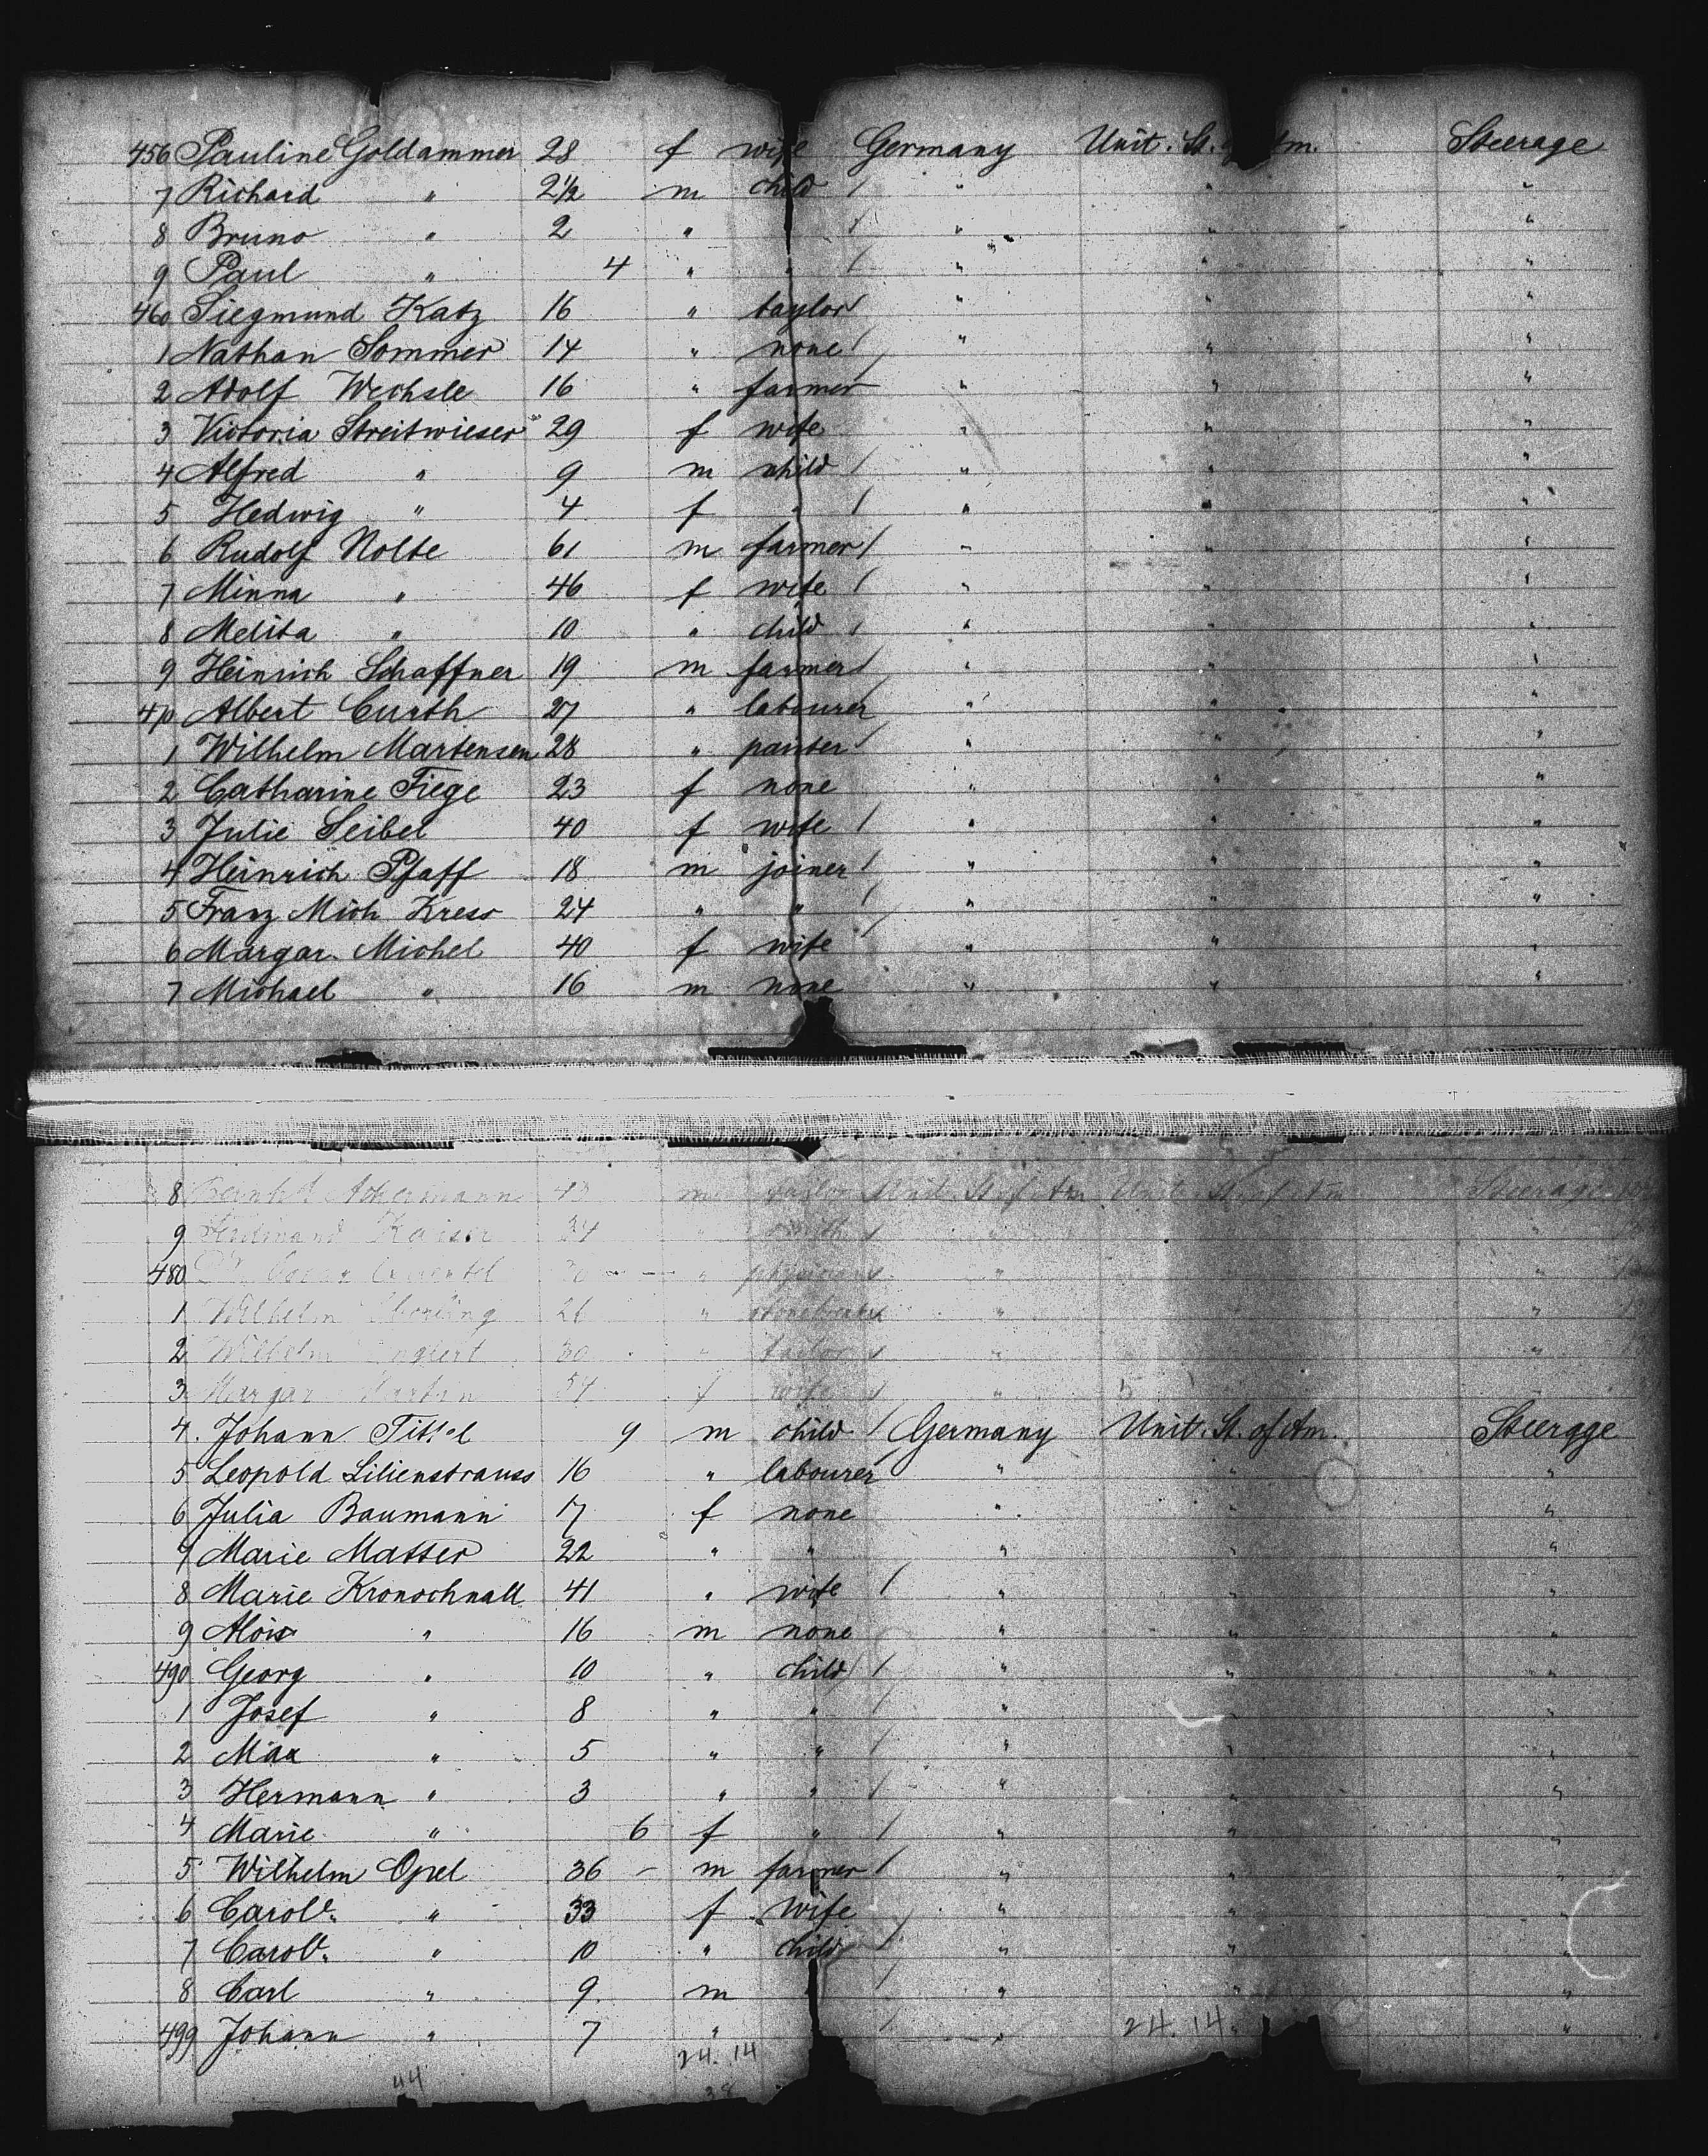 456 Pauline Goldammer 28 f wife Germany Unit. St. Am. Steerage
7 Richard " 2½ m child / " " "
8 Bruno " 2 " / " " "
9 Paul " 4 " " / " " "
460 Siegmund Katz 16 " taylor / " " "
1 Nathan Sommer 14 " none / " " "
2 Adolf Wechsle 16 " farmer " " "
3 Victoria Streitwieser 29 f wife " " "
4 Alfred " 9 m child / " " "
5 Hedwig " 4 f " / " " "
6 Rudolf Nolte 61 m farmer / " " "
7 Minna " 46 f wife / " " "
8 Melita " 10 " child / " " "
9 Heinrich Schaffner 19 m farmer / " " "
470 Albert Curth 27 " labourer " " "
1 Wilhelm Martensen 28 " painter / " " "
2 Catharine Fiege 23 f none " " "
3 Julie Seibel 40 f wife / " " "
4 Heinrich Pfaff 18 m joiner / " " "
5 Franz Mich Kress 24 " " / " " "
6 Margar. Michel 40 f wife / " " "
7 Michael " 16 m none " " "
8 Ackermann 43 m taylor Unit. St. of Am Unit. St. of Am Steerage
9 Ferdinand Kaiser 34 " smith / " "
480 " physician " "
1 Wilhelm 26 " " "
2 Wilhelm 30 " tailor / " "
3 Margar Martin 54 f wife / " 5
4. Johann Tittel 9 m child / Germany Unit. St. of Am. Steerage
5 Leopold Lilienstrauss 16 " labourer " " "
6 Julia Baumann 17 f none " "
7 Marie Matter 22 " " " " "
8 Marie Kronschnall 41 " wife / " " "
9 Alois " 16 m none " " "
490 Georg " 10 " child / " " "
1 Josef " 8 " " / " " "
2 Max " 5 " " / " " "
3 Hermann " 3 " " / " " "
4 Marie " 6 f " / " " "
5 Wilhelm Opel 36 – m farmer / " " "
6 Carole. " 33 f wife / " " "
7 Carole. " 10 " child / " " "
8 Carl " 9 m / " " "
499 Johann " 7 " / " 24. 14 " "
24. 14
44 38